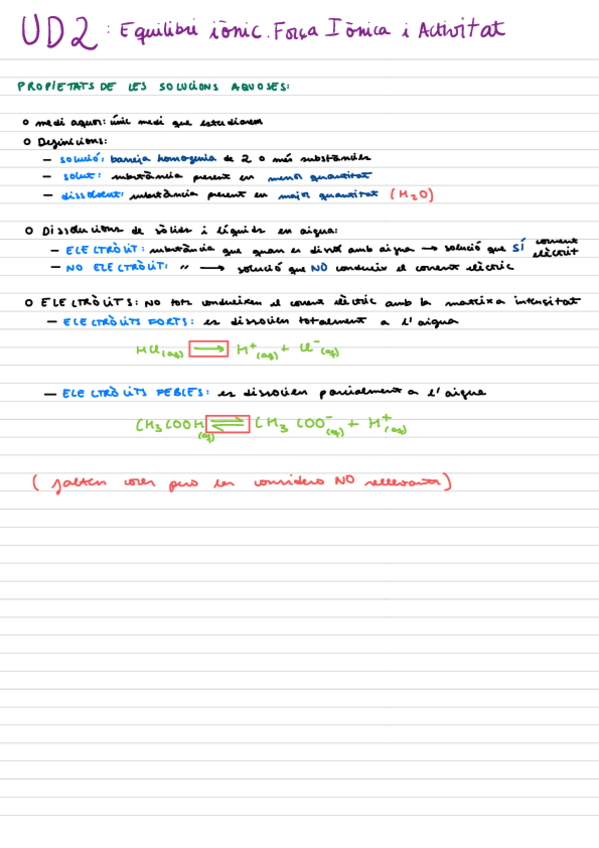 UD2: Equilibri iònic. Força Iònica i Activitat
PROPIETATS DE LES SOLUCIONS AQUOSES:
o medi aquos: únic medi que estudiarem
o Definicions:
– solució: barreja homogenia de 2 o més substàncies
– solut: substància present en menor quantitat
– dissolvent: substància present en major quantitat (H2O)
o Dissolucions de sòlids i líquids en aigua:
– ELECTRÒLIT: substància que quan es dissol amb aigua → solució que SÍ corrent elèctric
– NO ELECTRÒLIT: " → solució que NO condueix el corrent elèctric
o ELECTRÒLITS: NO tots condueixen el corrent elèctric amb la mateixa intensitat
– ELECTRÒLITS FORTS: es dissocien totalment a l'aigua
HCl(aq) → H+(aq) + Cl-(aq)
– ELECTRÒLITS FEBLES: es dissocien parcialment a l'aigua
CH3COOH(aq) ⇌ CH3COO-(aq) + H+(aq)
(falten coses però les considero NO rellevants)